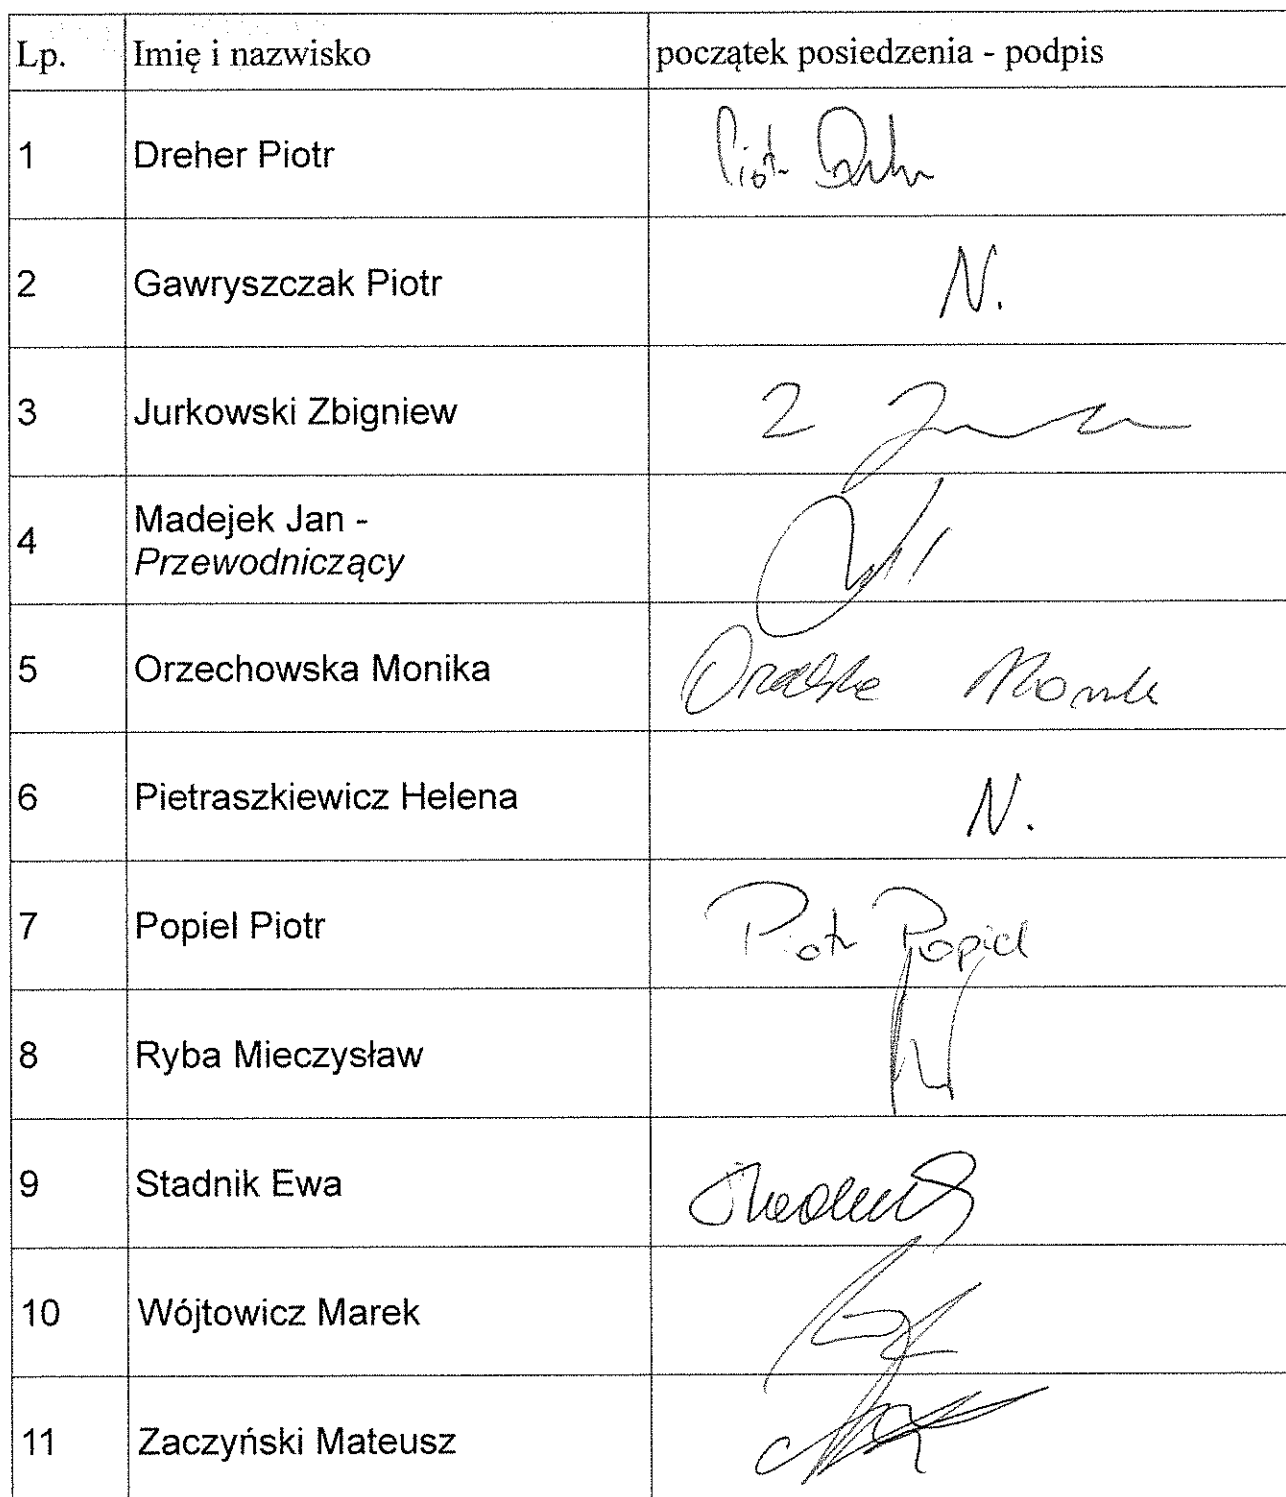 Lp. Imię i nazwisko początek posiedzenia - podpis
1 Dreher Piotr Piotr
2 Gawryszczak Piotr N.
3 Jurkowski Zbigniew
4 Madejek Jan -
Przewodniczący
5 Orzechowska Monika
6 Pietraszkiewicz Helena N.
7 Popiel Piotr Piotr Popiel
8 Ryba Mieczysław
9 Stadnik Ewa
10 Wójtowicz Marek
11 Zaczyński Mateusz